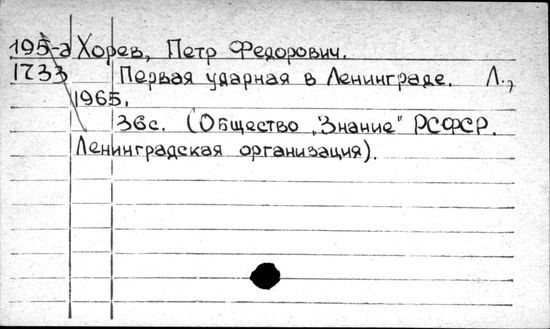 195-а Хорев, Петр Федорович.
1733 Первая ударная в Ленинграде. Л.,
1965.
36с. (Общество „Знание" РСФСР.
Ленинградская организация).